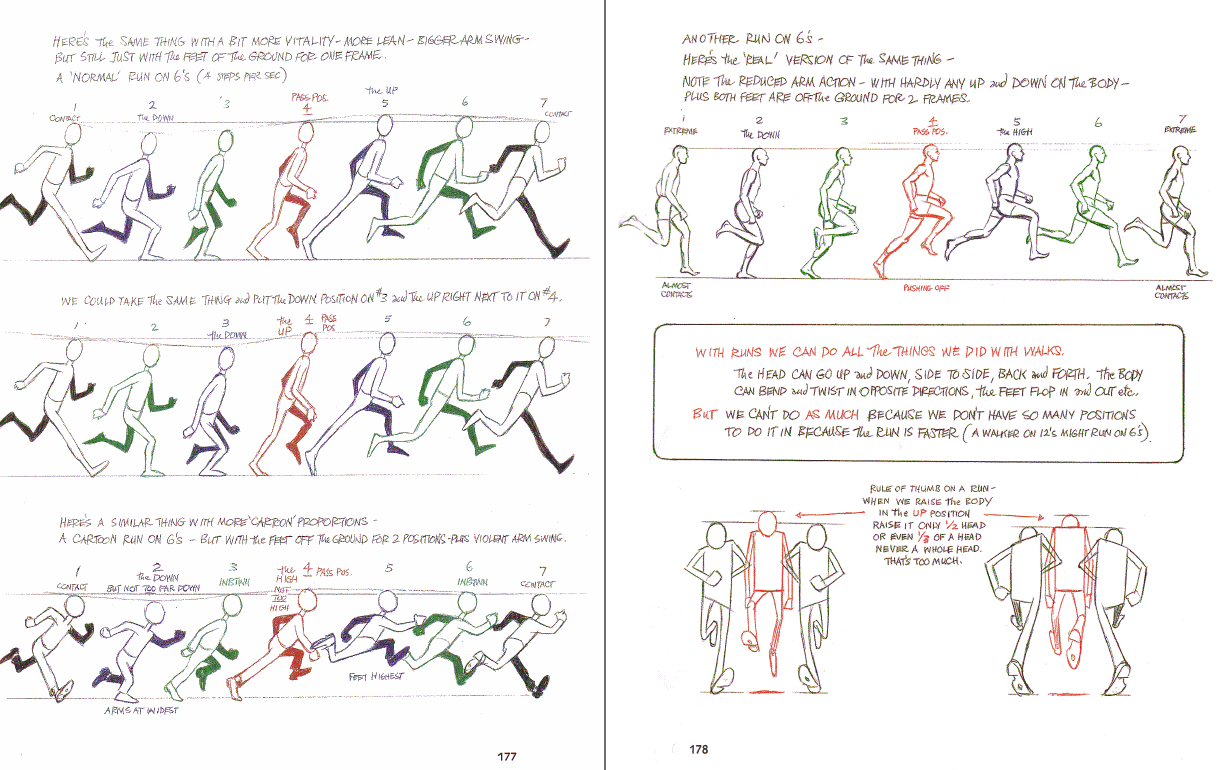 HERE'S the SAME THING WITH A BIT MORE VITALITY - MORE LEAN - BIGGER ARM SWING -
BUT STILL JUST WITH The FEET OF The GROUND FOR ONE FRAME.
A 'NORMAL' RUN ON 6'S (4 STEPS PER SEC)
1
CONTACT
2
the DOWN
3
PASS POS.
4
the UP
5
6
7
CONTACT
WE COULD TAKE The SAME THING and PUT The DOWN POSITION ON #3 and The UP RIGHT NEXT TO IT ON #4.
1
2
3
the DOWN
the UP
4
PASS POS
5
6
7
HERE'S A SIMILAR THING WITH MORE 'CARTOON' PROPORTIONS -
A CARTOON RUN ON 6'S - BUT WITH the FEET OFF The GROUND FOR 2 POSITIONS - PLUS VIOLENT ARM SWING.
1
CONTACT
2
the DOWN
BUT NOT TOO FAR DOWN
3
INBTWN
the HIGH
NOT TOO HIGH
4 PASS POS.
5
6
INBTWN
7
CONTACT
FEET HIGHEST
ARMS AT WIDEST
177
ANOTHER RUN ON 6's -
HERE'S the 'REAL' VERSION OF The SAME THING -
NOTE The REDUCED ARM ACTION - WITH HARDLY ANY UP and DOWN ON The BODY -
PLUS BOTH FEET ARE OFF The GROUND FOR 2 FRAMES.
1
EXTREME
2
the DOWN
3
4
PASS POS.
5
the HIGH
6
7
EXTREME
ALMOST
CONTACTS
PUSHING OFF
ALMOST
CONTACTS
WITH RUNS WE CAN DO ALL The THINGS WE DID WITH WALKS.
The HEAD CAN GO UP and DOWN, SIDE TO SIDE, BACK and FORTH. The BODY
CAN BEND and TWIST IN OPPOSITE DIRECTIONS, The FEET FLOP IN and OUT etc.
BUT WE CAN'T DO AS MUCH BECAUSE WE DON'T HAVE SO MANY POSITIONS
TO DO IT IN BECAUSE The RUN IS FASTER (A WALKER ON 12's MIGHT RUN ON 6's).
RULE OF THUMB ON A RUN -
WHEN WE RAISE the BODY
IN the UP POSITION
RAISE IT ONLY 1/2 HEAD
OR EVEN 1/3 OF A HEAD
NEVER A WHOLE HEAD.
THAT'S TOO MUCH.
178